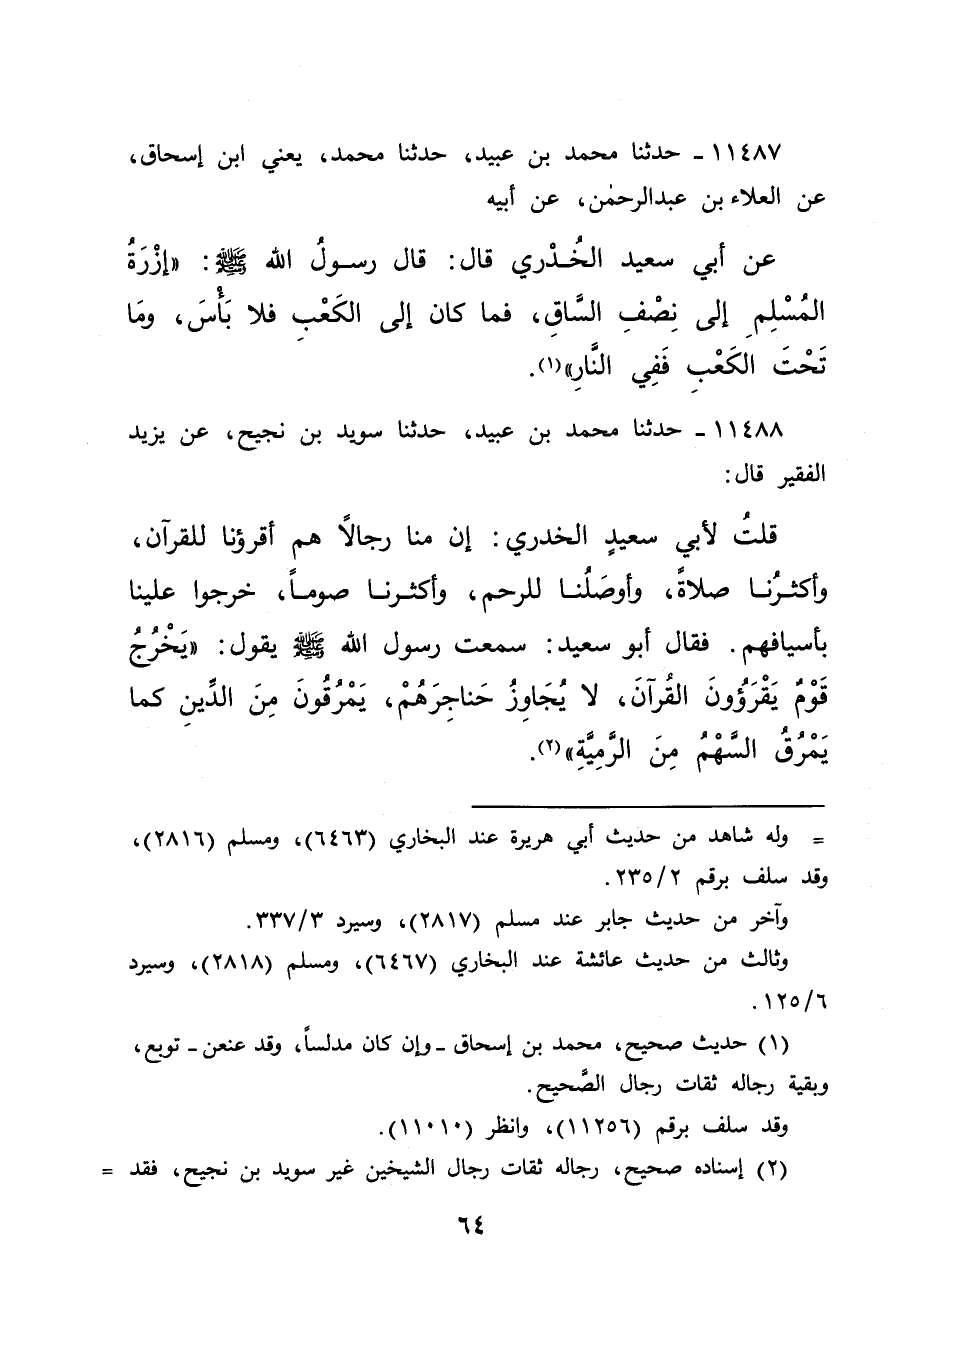 ١١٤٨٧ - حدثنا محمد بن عبيد، حدثنا محمد، يعني ابن إسحاق،
عن العلاء بن عبدالرحمٰن، عن أبيه
عن أبي سعيد الخُدْري قال: قال رسولُ الله ﷺ: «إزْرَةُ
المُسْلِمِ إلى نِصْفِ السَّاقِ، فما كان إلى الكَعْبِ فلا بَأْسَ، ومَا
تَحْتَ الكَعْبِ فَفِي النَّارِ»(١).
١١٤٨٨ - حدثنا محمد بن عبيد، حدثنا سويد بن نجيح، عن يزيد
الفقير قال:
قلتُ لأبي سعيدٍ الخدري: إن منا رجالاً هم أقرؤنا للقرآن،
وأكثرُنا صلاةً، وأوصَلُنا للرحم، وأكثرنا صوماً، خرجوا علينا
بأسيافهم. فقال أبو سعيد: سمعت رسول الله ﷺ يقول: «يَخْرُجُ
قَوْمٌ يَقْرَؤُونَ القُرآنَ، لا يُجَاوِزُ حَناجِرَهُمْ، يَمْرُقُونَ مِنَ الدِّينِ كما
يَمْرُقُ السَّهْمُ مِنَ الرَّمِيَّةِ»(٢).
= وله شاهد من حديث أبي هريرة عند البخاري (٦٤٦٣)، ومسلم (٢٨١٦)،
وقد سلف برقم ٢٣٥/٢.
وآخر من حديث جابر عند مسلم (٢٨١٧)، وسيرد ٣٣٧/٣.
وثالث من حديث عائشة عند البخاري (٦٤٦٧)، ومسلم (٢٨١٨)، وسيرد
١٢٥/٦.
(١) حديث صحيح، محمد بن إسحاق -وإن كان مدلساً، وقد عنعن- توبع،
وبقية رجاله ثقات رجال الصَّحيح.
وقد سلف برقم (١١٢٥٦)، وانظر (١١٠١٠).
(٢) إسناده صحيح، رجاله ثقات رجال الشيخين غير سويد بن نجيح، فقد =
٦٤